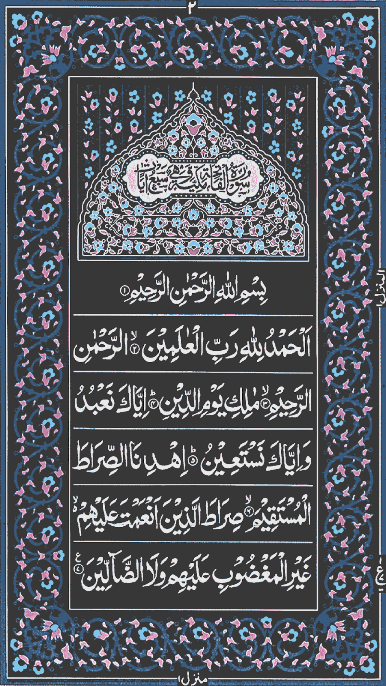 ٢
سورة الفاتحة مكية وهي سبع آيات
بِسْمِ اللهِ الرَّحْمٰنِ الرَّحِيْمِ ۝١
اَلْحَمْدُ لِلّٰهِ رَبِّ الْعٰلَمِيْنَ ۝٢ الرَّحْمٰنِ
الرَّحِيْمِ ۝٣ مٰلِكِ يَوْمِ الدِّيْنِ ۝٤ اِيَّاكَ نَعْبُدُ
وَاِيَّاكَ نَسْتَعِيْنُ ۝٥ اِهْدِنَا الصِّرَاطَ
الْمُسْتَقِيْمَ ۝٦ صِرَاطَ الَّذِيْنَ اَنْعَمْتَ عَلَيْهِمْ
غَيْرِ الْمَغْضُوْبِ عَلَيْهِمْ وَلَا الضَّآلِّيْنَ ۝٧
منزل ١